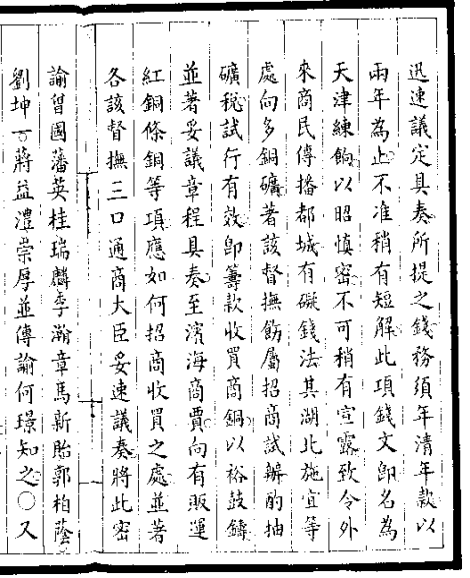 迅速議定具奏所提之錢務須年清年款以
兩年為止不准稍有短解此項錢文即名為
天津練餉以昭慎密不可稍有宣露致令外
來商民傳播都城有礙錢法其湖北施宜等
處向多銅礦著該督撫飭屬招商試辦酌抽
礦稅試行有效即籌款收買商銅以裕鼓鑄
並著妥議章程具奏至濱海商賈向有販運
紅銅條銅等項應如何招商收買之處並著
各該督撫三口通商大臣妥速議奏將此密
諭曾國藩英桂瑞麟李瀚章馬新貽郭柏蔭
劉坤一蔣益澧崇厚並傳諭何璟知之○又